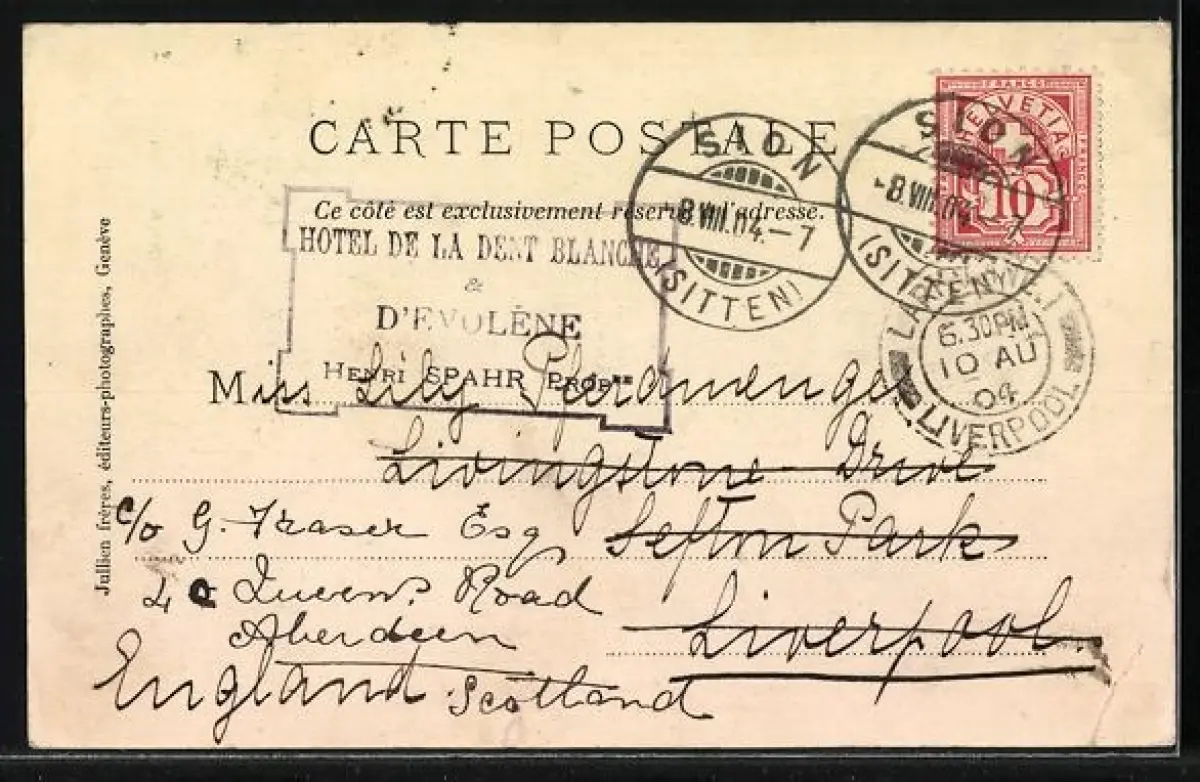 CARTE POSTALE
Ce côté est exclusivement réservé à l'adresse.
HOTEL DE LA DENT BLANCHE
&
D'EVOLÈNE
HENRI SPAHR PROPRE
SION
8.VIII.04.-7
(SITTEN)
FRANCO
HELVETIA
10
SION
8.VIII.04.-7
(SITTEN)
6.30PM
10 AU
04
LIVERPOOL
Miss Lily
Livingstone Drive
Sefton Park
Liverpool.
c/o G. Fraser Esq
Queen's Road
Aberdeen
Scotland
England
Jullien frères, éditeurs-photographes, Genève